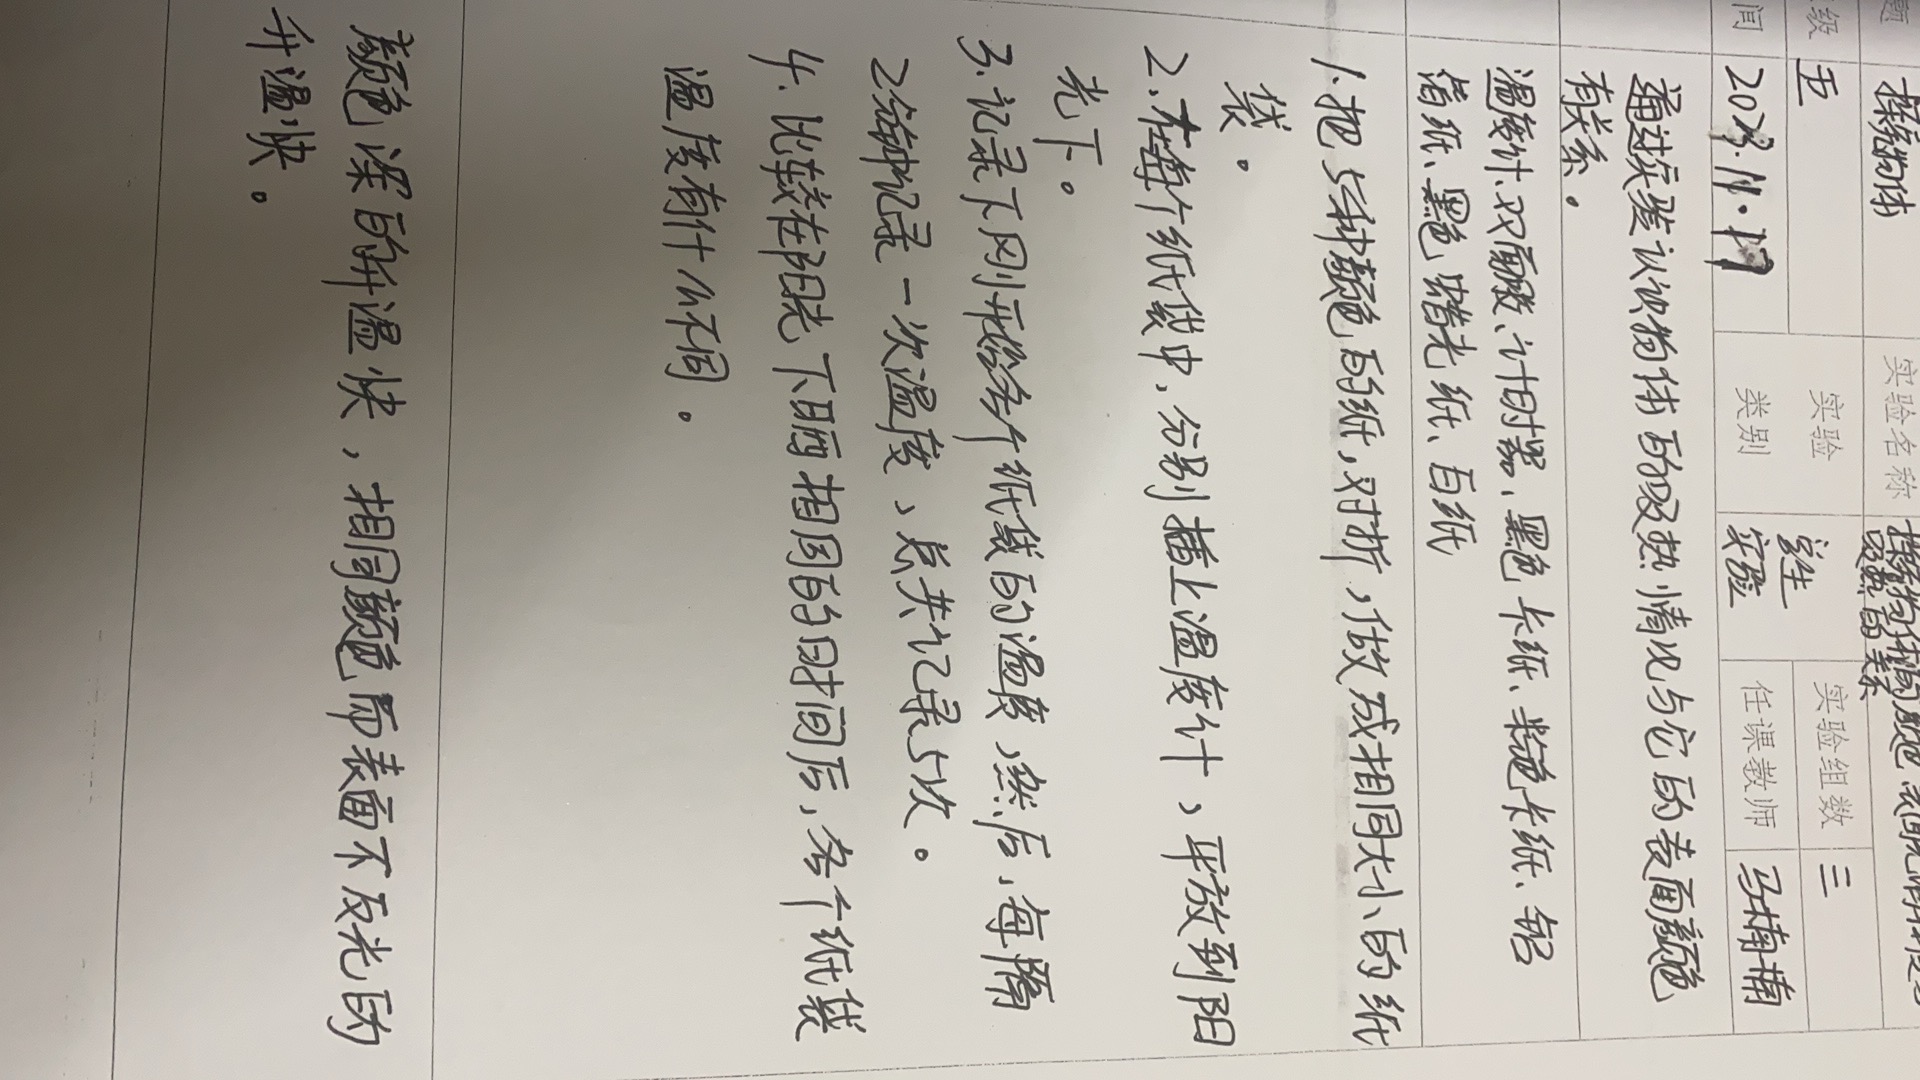 题 探究物体 实验名称 探究物体的颜色
吸热的关系
级 五 实验 学生 实验组数 三
间 2023.11.17 类别 实验 任课教师 马楠楠
通过实验认识物体的吸热情况与它的表面颜色
有关系。
温度计、双面胶、计时器、黑色卡纸、粉色卡纸、铝
箔纸、黑色蜡光纸、白纸
1.把5种颜色的纸,对折,做成相同大小的纸
袋。
2.在每个纸袋中,分别插上温度计,平放到阳
光下。
3.记录下刚开始各个纸袋的温度,然后,每隔
2分钟记录一次温度,总共记录5次。
4.比较在阳光下晒相同的时间后,各个纸袋
温度有什么不同。
颜色深的升温快,相同颜色而表面不反光的
升温快。